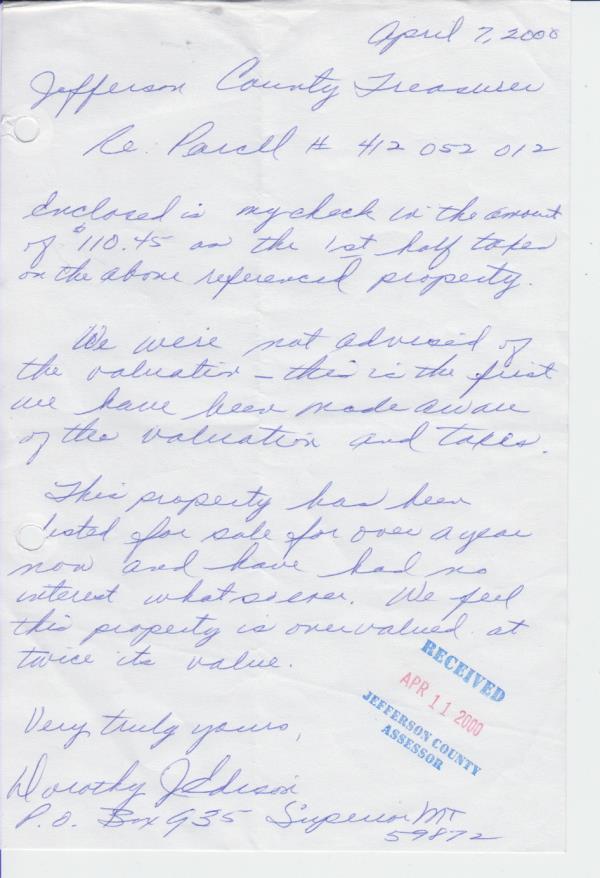 April 7, 2000
Jefferson County Treasurer
Re: Parcell # 412 052 012
Enclosed is my check in the amount
of $110.45 as the 1st half taxes
on the above referenced property.
We were not advised of
the valuation – this is the first
we have been made aware
of the valuation and taxes.
This property has been
listed for sale for over a year
now and have had no
interest whatsoever. We feel
this property is overvalued at
twice its value.
RECEIVED
APR 11 2000
JEFFERSON COUNTY
ASSESSOR
Very truly yours,
Dorothy J Edison
P.O. Box 935 Superior MT
59872